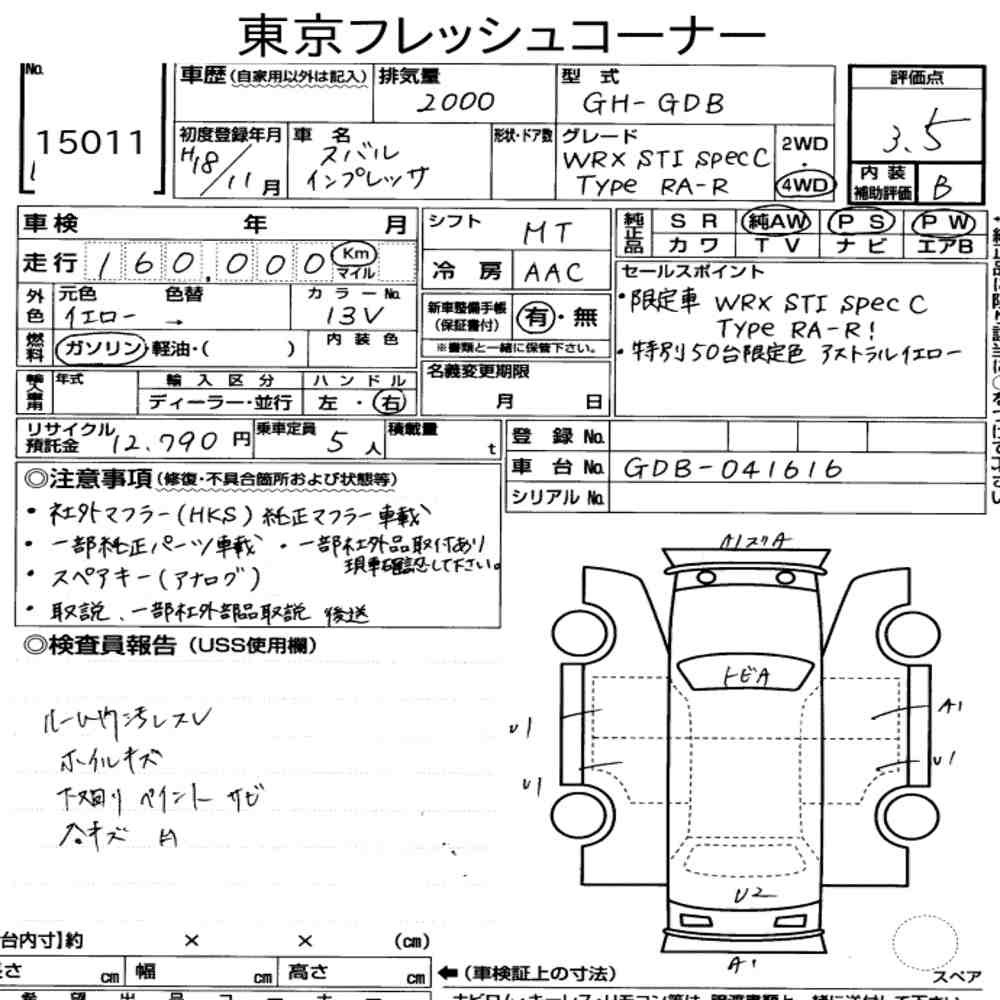 東京フレッシュコーナー
No. 15011
車歴(自家用以外は記入) 排気量 2000 型式 GH-GDB 評価点 3.5
初度登録年月 H18/11月 車名 スバル インプレッサ 形状・ドア数 グレード WRX STI Spec C Type RA-R 2WD・4WD 内装補助評価 B
車検 年 月 シフト MT 純正品 SR 純AW PS PW
カワ TV ナビ エアB
走行 160,000 Km マイル 冷房 AAC セールスポイント
外色 元色 イエロー 色替 → カラーNo. 13V 新車整備手帳(保証書付) 有・無 ・限定車 WRX STI Spec C
Type RA-R!
燃料 ガソリン・軽油・( ) 内装色 ※書類と一緒に保管下さい。 ・特別50台限定色 アストラルイエロー
輸入車用 年式 輸入区分 ハンドル 名義変更期限
ディーラー・並行 左・右 月 日
リサイクル預託金 12,790円 乗車定員 5人 積載量 t 登録No.
車台No. GDB-041616
シリアルNo.
◎注意事項(修復・不具合箇所および状態等)
・社外マフラー(HKS)純正マフラー車載
・一部純正パーツ車載 ・一部社外品取付あり
現車確認して下さい。
・スペアキー(アナログ)
・取説、一部社外部品取説 後送
◎検査員報告(USS使用欄)
A1スリA
トビA
ルーム内汚レスレ
U1 A1
ホイルキズ
U1 U1
下廻り ペイント サビ
小キズ A
U2
台内寸】約 × × (cm)
A1
長さ cm 幅 cm 高さ cm ←(車検証上の寸法)
スペア
希望出品コーナー